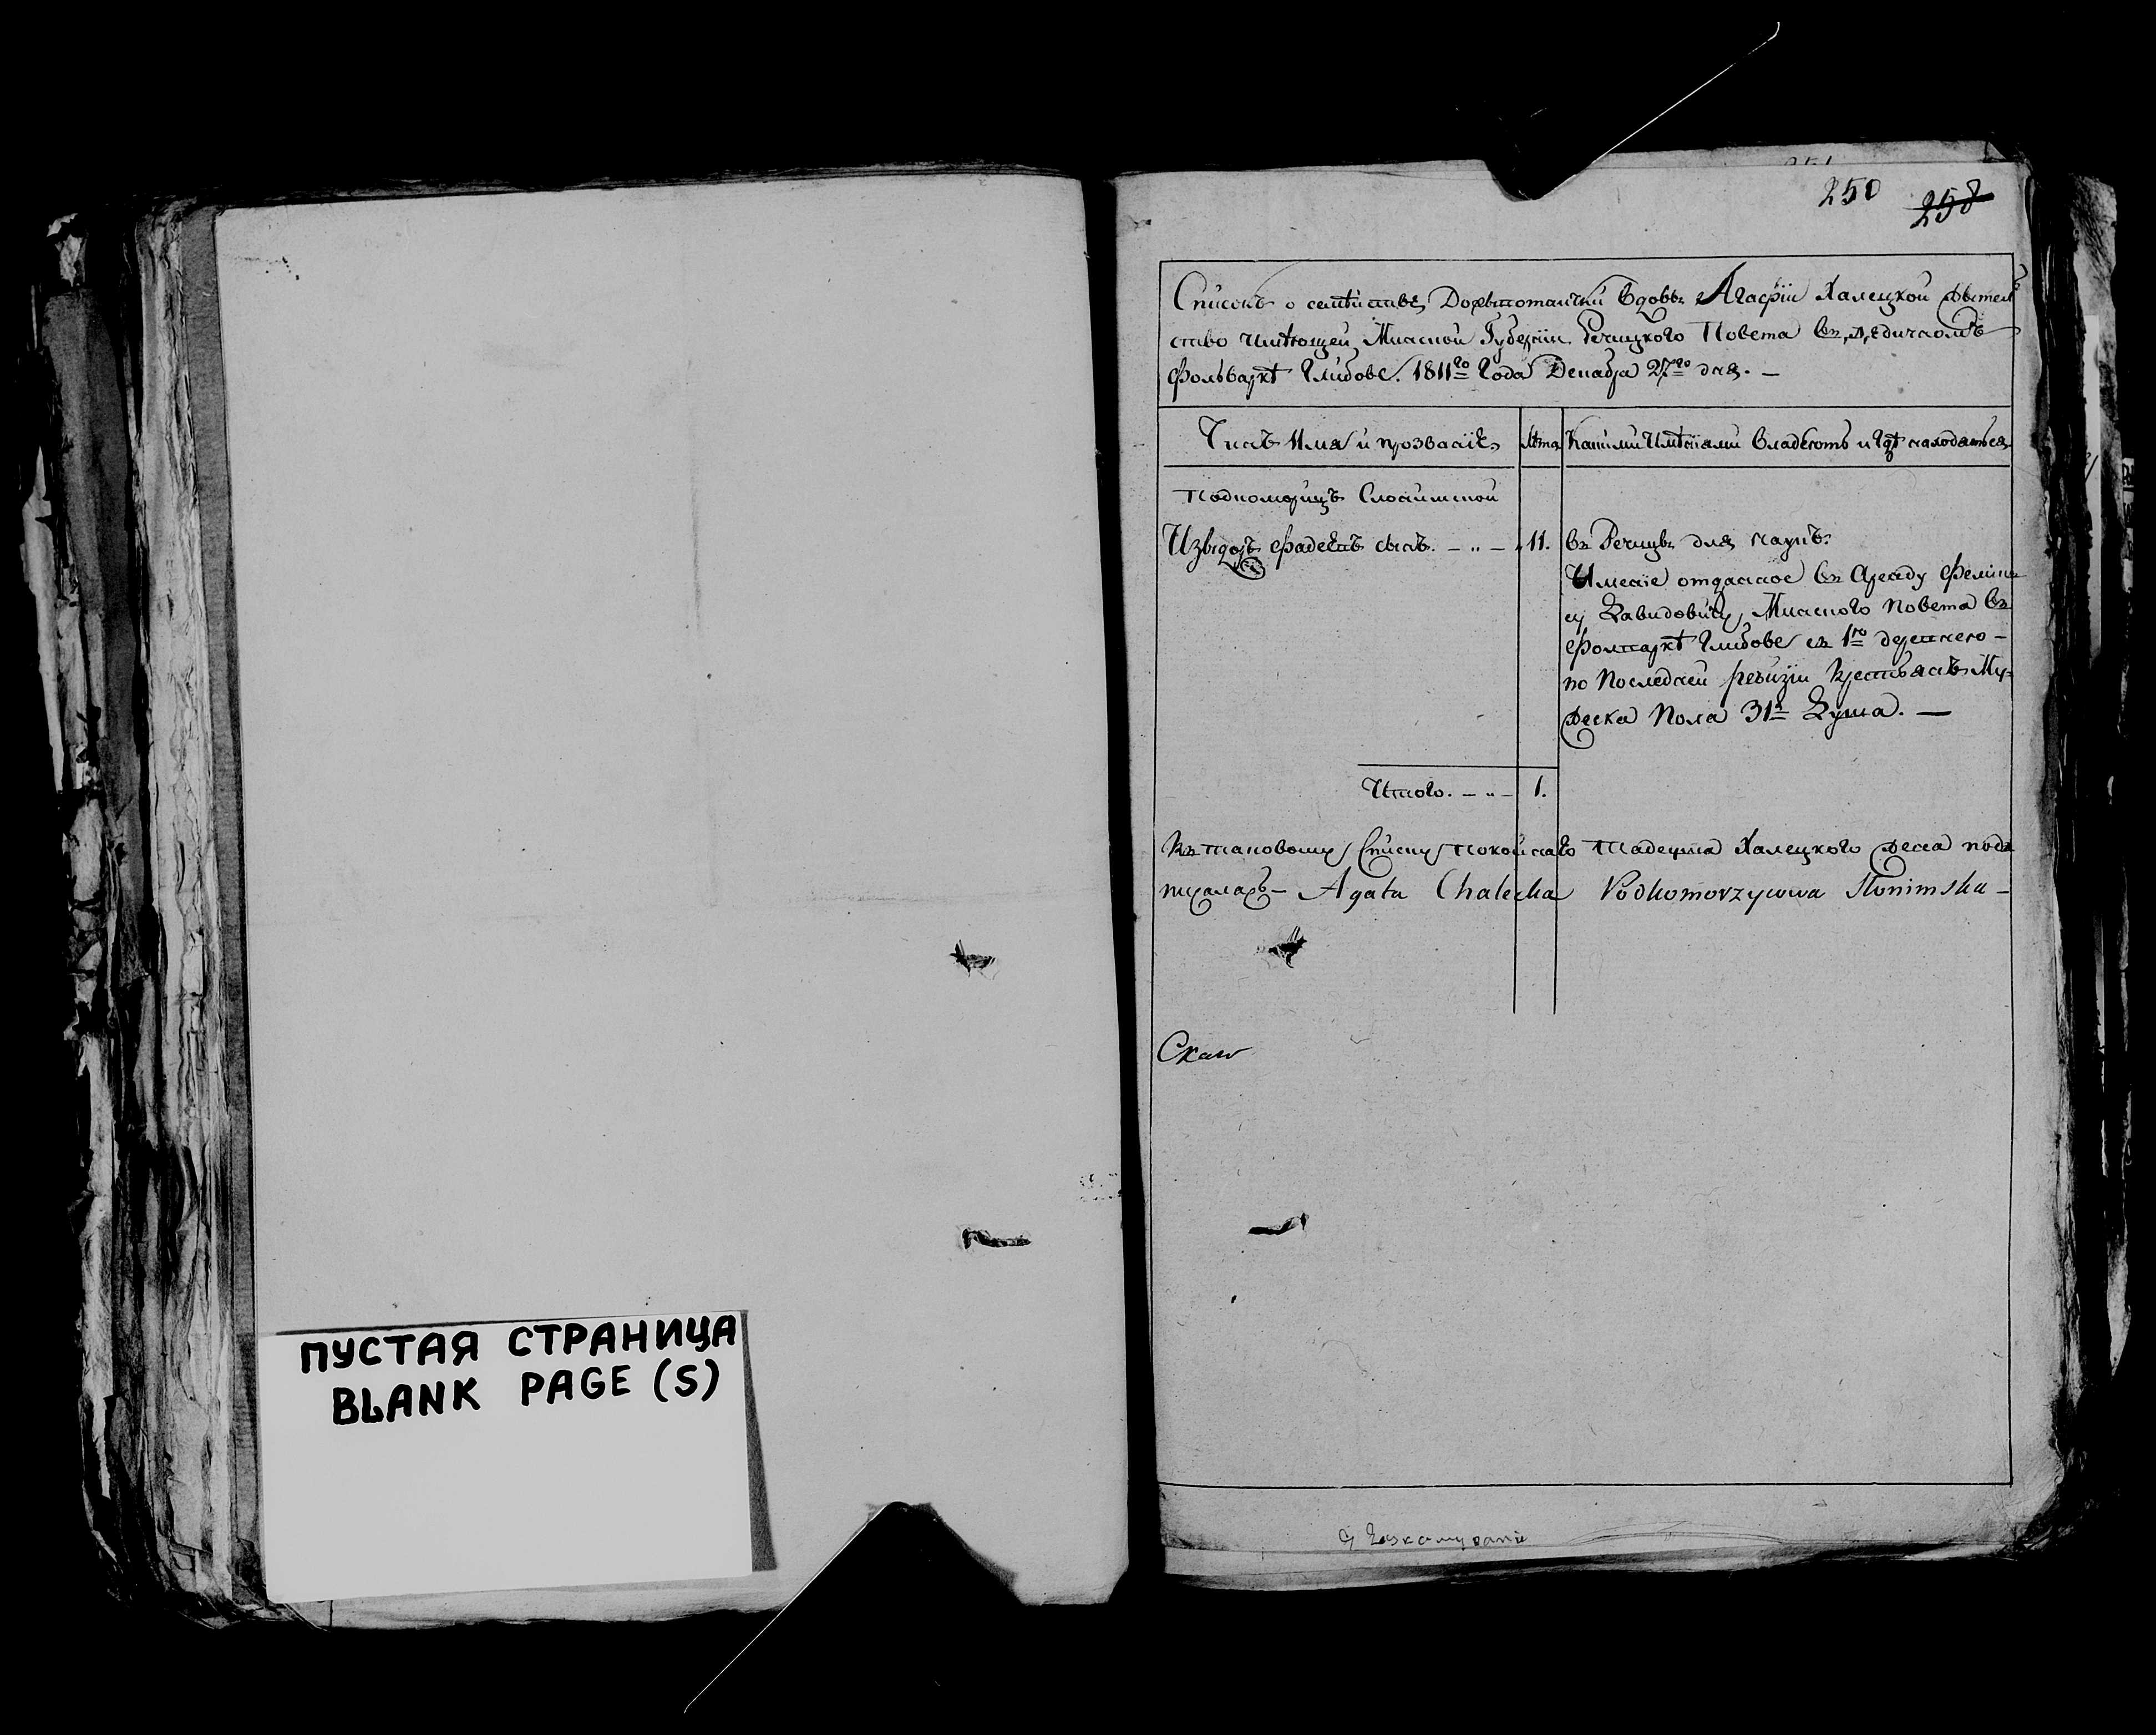 250 258
Списокъ о семѣйстве Дворянки вдовы Агафіи Халецкой жител
ство имѣющей Минской Губерніи Речицкого Повета въ
фольваркѣ Глибове. 1811го Года Декабря 27го дня. —
Чинъ Имя и прозваніе Лѣта Какими Имѣніями владѣютъ и гдѣ находятся
Подкоморицъ Слонимской
Изыдоръ Фадеевъ сынъ. — „ — 11. въ Речице для наукъ.
Имение отданное въ Аренду
Давидовичу Минского повета въ
Фольваркѣ Глибове съ 1го
по последней ревизіи крестьянъ Му-
жеска Пола 31на Душа. —
Итого. — „ — 1.
Къ таковому списку покойнаго Тадеуша Халецкого жена подъ
писалась — Agata Chalecka Podkomorzyowa Słonimska —
ПУСТАЯ СТРАНИЦА
BLANK PAGE (S)